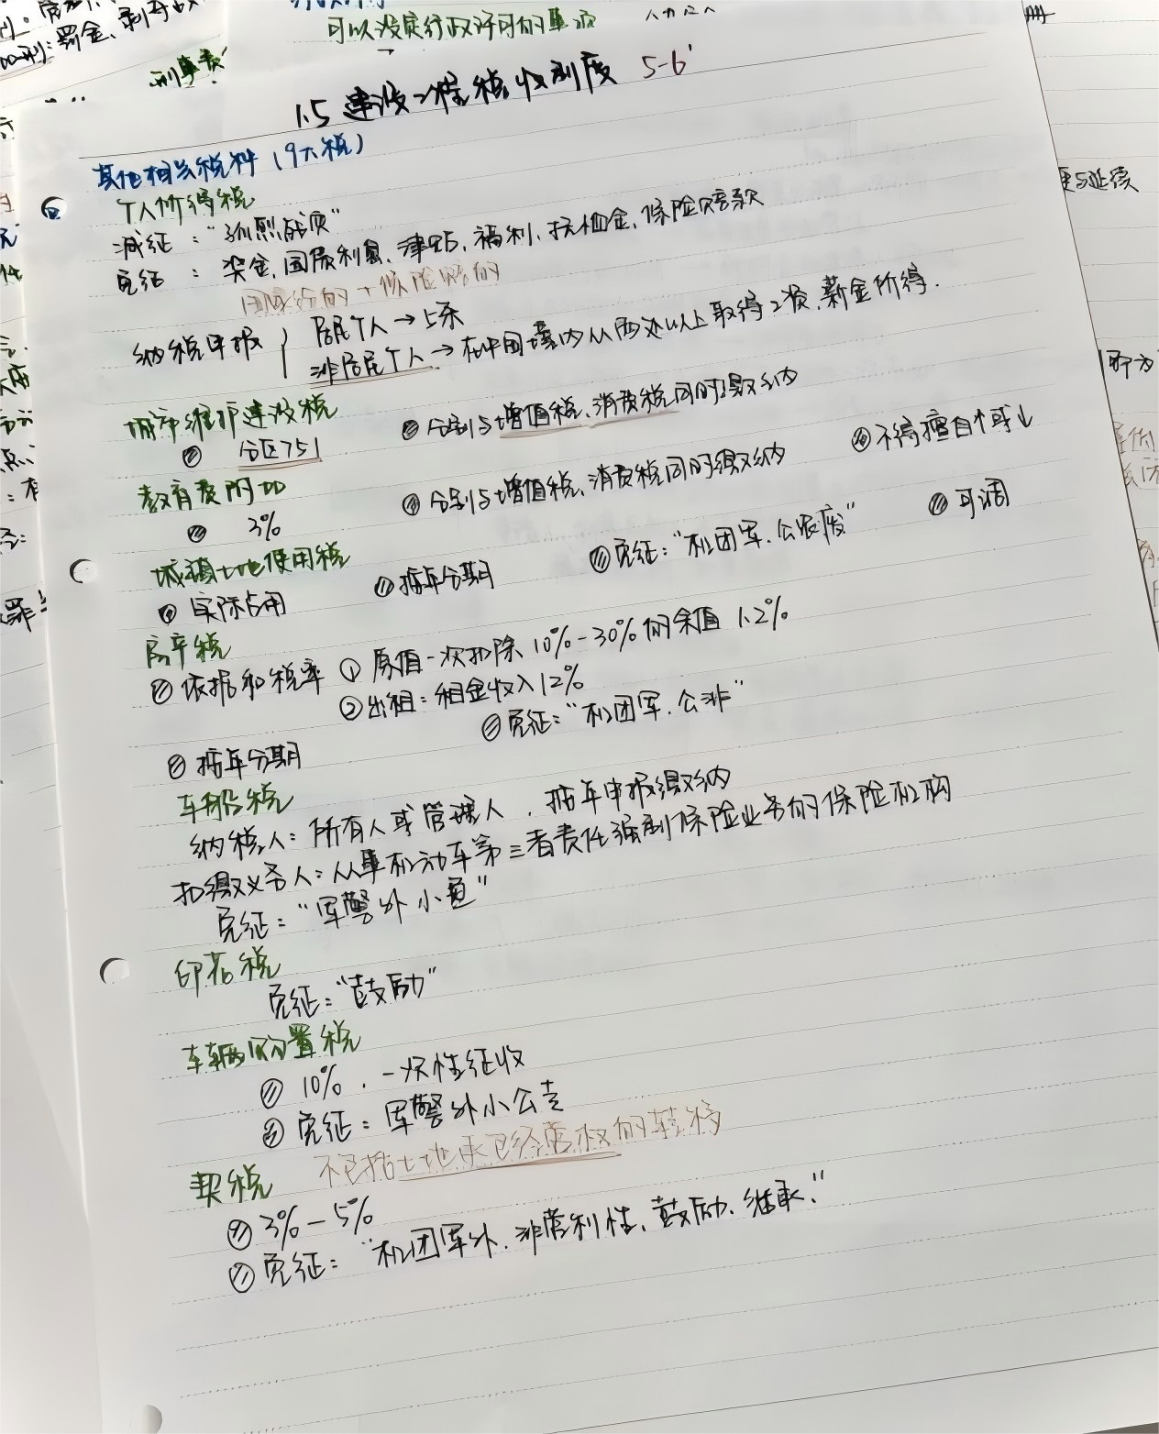 可以设定行政许可的事项
刑事责
1.5 建设工程税收制度 5-6'
其他相关税种(9大税)
个人所得税
减征:"孤烈残灾"
免征:奖金、国债利息、津贴、福利、抚恤金、保险赔款
国家给的+保险赔的
纳税申报
居民个人→5条
非居民个人→在中国境内从两处以上取得工资、薪金所得.
城市维护建设税
分区751
分别与增值税、消费税同时缴纳
教育费附加
3%
分别与增值税、消费税同时缴纳
不得擅自个或↓
城镇土地使用税
实际占用
按年分期
免征:"机团军.公农废"
可调
房产税
依据和税率 ① 原值一次扣除10%-30%的余值 1.2%
②出租:租金收入12%
按年分期
免征:"机团军.公非"
车船税
纳税人:所有人或管理人,按年申报缴纳
扣缴义务人:从事机动车第三者责任强制保险业务的保险机构
免征:"军警外小鱼"
印花税
免征:"鼓励"
车辆购置税
10%.一次性征收
免征:军警外小公专
契税 不包括土地承包经营权的转移
3%-5%
免征:"机团军外.非营利性、鼓励.继承."